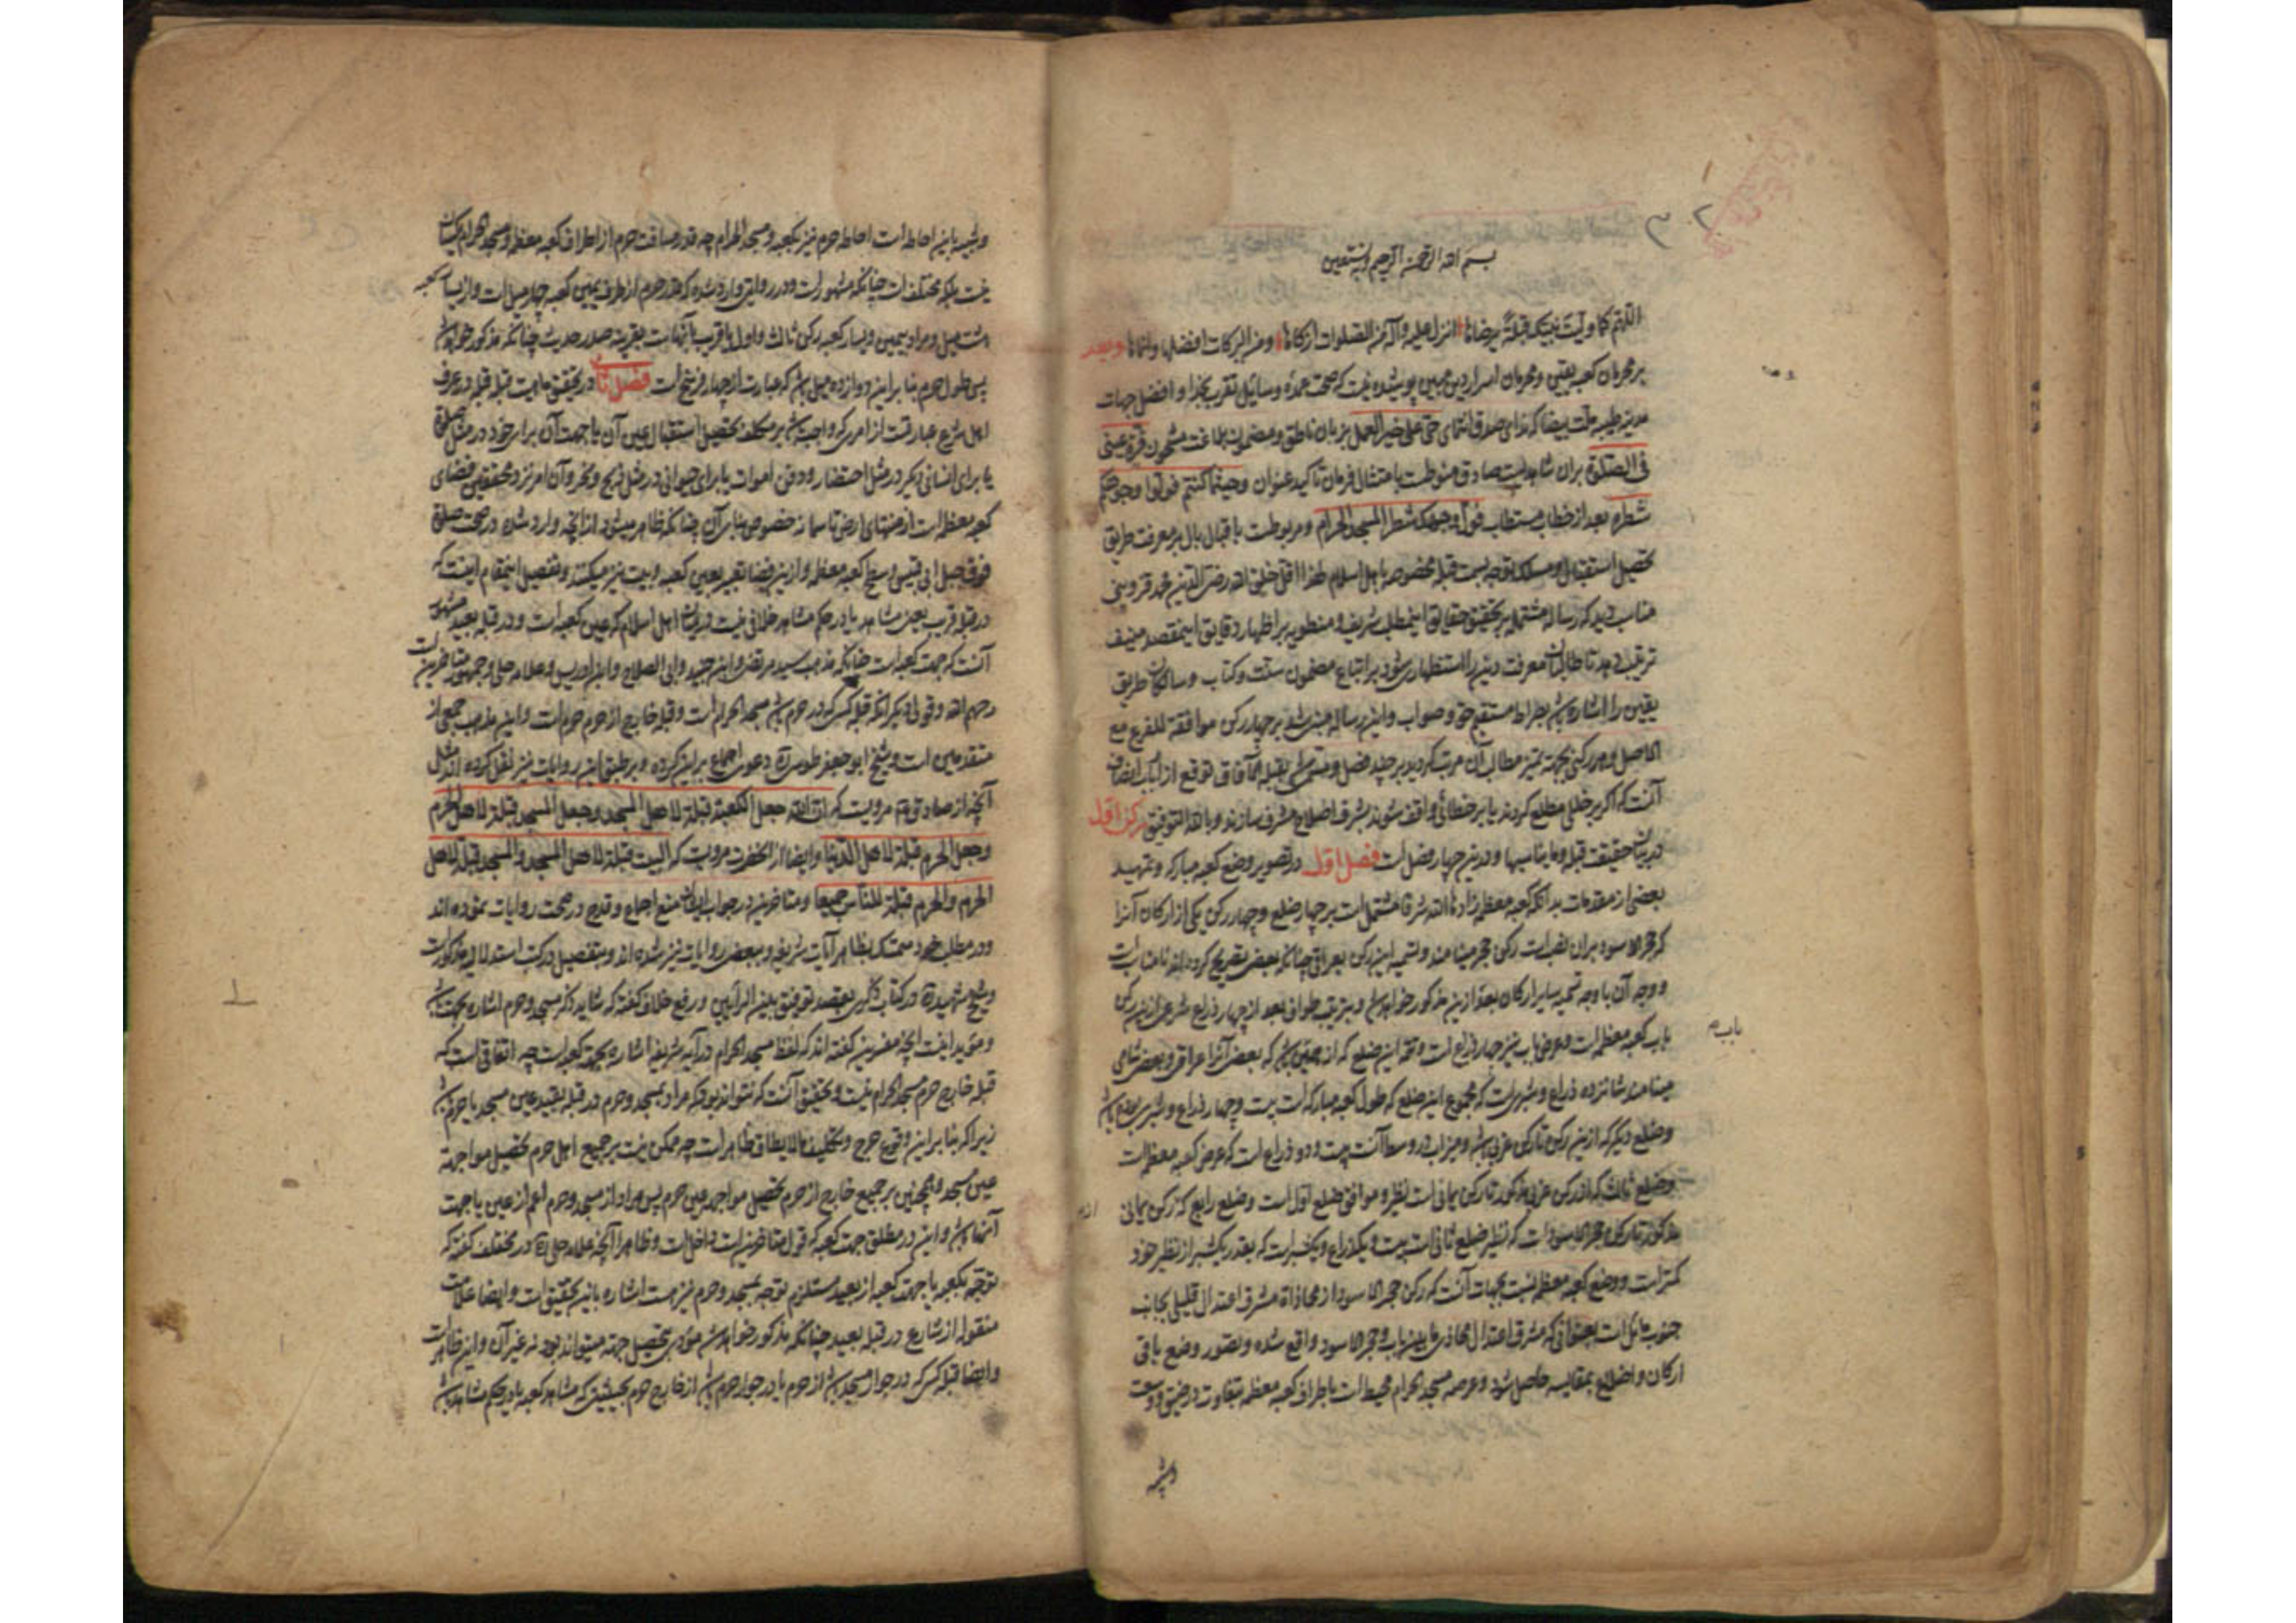 بسم الله الرحمن الرحیم وبه نستعین
اللهم کما ولیت نبیک قبلة یرضاها انزل علیه وآله من الصلوات ازکاها ومن البرکات افضلها وانماها وبعد
بر محرمان کعبه یقین ومحرمان اسرار دین مبین پوشیده نیست که عمده وسایل تقرب بخدا وافضل جهات
ندای صدق انتمای حی علی خیر العمل بزبان ناطق ومضمون بلاغت مشحون قرة عینی
فی الصلوة بران شاهدیست صادق منوطست بامتثال فرمان تاکید عنوان وحیثما کنتم فولوا وجوهکم
شطره بعد از خطاب مستطاب فول وجهک شطر المسجد الحرام ومربوطست باقبال بال بر معرفت طریق
تحصیل استقبال ومسلک توجه بسمت قبله مخصوصه باهل اسلام لهذا اقل خلق الله رضی الدین محمد قزوینی
مناسب دید که رساله مشتمل بر تحقیق حقایق این مطلب شریف ومنطوی بر اظهار دقایق این مقصد منیف
ترتیب دهد تا طالبان معرفت دین را استظهاری شود بر اتباع مضمون سنت وکتاب وسالکان طریق
یقین را اشاره باشد بصراط مستقیم حق وصواب واین رساله مبتنی شد بر چهار رکن موافقة للفرع مع
الاصل وهر رکنی بجهة تمیز مطالب آن مرتب گردید بر چند فصل ومسمی بقبلة الآفاق توقع از ارباب انصاف
آنست که اگر بر خللی مطلع گردند یا بر خطائی واقف شوند بشرف اصلاح مشرف سازند وبالله التوفیق رکن اول
در بیان حقیقت قبله وما یناسبها ودرین چهار فصل است فصل اول در تصویر وضع کعبه مبارکه وتمهید
بعضی از مقدمات بدانکه کعبه معظمه زادها الله شرفا مشتمل است بر چهار ضلع وچهار رکن یکی از ارکان آنرا
که حجر الاسود بران نصب است رکن حجر مینامند وتسمیه این رکن بعراقی چنانکه بعضی تصریح کرده اند نامناسب است
ووجه آن با وجه تسمیه سایر ارکان بعد ازین مذکور خواهد شد وبترتیب طواف بعد از چهار ذراع شرعی ازین رکن
باب کعبه معظمه است وعرض باب نیز چهار ذراع است وتتمه این ضلع که از یمین باب که بعضی آنرا عراقی وبعضی شامی
مینامند شانزده ذراع وشبری است که مجموع این ضلع که طول کعبه مبارکه است بیست وچهار ذراع وشبری بوده باشد
وضلع دیگر که ازین رکن تا رکن غربی باشد ومیزاب در وسط آنست بیست ودو ذراع است که عرض کعبه معظمه است
وضلع ثالث که از رکن غربی مذکور تا رکن یمانی است نظیر وموافق ضلع اول است وضلع رابع که از رکن یمانی
مذکور تا رکن حجر الاسود است که نظیر ضلع ثانی است بیست ویکذراع ویکشبر است که بقدر یکشبر از نظیر خود
کمتر است ووضع کعبه معظمه نسبت بجهات آنست که رکن حجر الاسود از محاذاة مشرق اعتدال قلیلی بجانب
جنوب مایل است بعنوانی که مشرق اعتدال محاذی ما بین باب وحجر الاسود واقع شده وتصور وضع باقی
ارکان واضلاع بمقایسه حاصل شود وعرصه مسجد الحرام محیط است باطراف کعبه معظمه بتفاوت در ضیق ووسعت
باب
نیست بلکه مختلف است چنانکه مشهور است ودر روایتی وارد شده که قدر حرم از طرف یمین کعبه چهار میل است واز یسار کعبه
هشت میل ومراد بیمین ویسار کعبه رکن ثالث واول یا قریب بآنهاست بقرینه صدر حدیث چنانکه مذکور خواهد شد
پس طول حرم بنا برین دوازده میل باشد که عبارت از چهار فرسخ است فصل ثانی در تحقیق ماهیت قبله قبله در عرف
اهل شرع عبارتست از امری که واجب باشد بر مکلف تحصیل استقبال عین آن یا جهت آن برای خود در مثل صلوة
یا برای انسانی دیگر در مثل احتضار ودفن اموات یا برای حیوانی در مثل ذبح ونحر وآن امر نزد محققین فضای
کعبه معظمه است از منتهای ارض تا سما نه خصوص بنا بر آن چنانکه ظاهر میشود از آنچه وارد شده در صحت صلوة
فوق جبل ابی قبیس وسطح کعبه معظمه وازین فضا تعبیر بعین کعبه وبیت نیز میکنند وتفصیل این مقام اینست که
در قبله قریب یعنی مشاهد یا در حکم مشاهد خلافی نیست در میان اهل اسلام که عین کعبه است ودر قبله بعید مشهور
آنست که جهت کعبه است چنانکه مذهب سید مرتضی وابن جنید وابی الصلاح وابن ادریس وعلامه حلی وجمهور متاخرین است
رحمهم الله وقولی دیگر آنکه قبله کسی که در حرم باشد مسجد الحرام است وقبله خارج از حرم حرم است واین مذهب جمعی از
متقدمین است وشیخ ابو جعفر طوسی ره دعوی اجماع برین کرده وبر طبق این روایات نیز نقل کرده اند مثل
آنچه از صادق ع مرویست که ان الله جعل الکعبة قبلة لاهل المسجد وجعل المسجد قبلة لاهل الحرم
وجعل الحرم قبلة لاهل الدنیا وایضا از آنحضرت مرویست که البیت قبلة لاهل المسجد والمسجد قبلة لاهل
الحرم والحرم قبلة للناس جمیعا ومتاخرین در جواب ایشان منع اجماع وقدح در صحت روایات نموده اند
ودر مطلب خود متمسک بظاهر آیات شریفه وبعضی روایات نیز شده اند وبتفصیل در کتب استدلالیه مذکور است
وشیخ شهید ره در کتاب ذکری بقصد توفیق بین الرأیین ورفع خلاف گفته که شاید ذکر مسجد وحرم اشاره بجهت باشد
ومؤید اینست آنچه مفسرین گفته اند که لفظ مسجد الحرام در آیه شریفه اشاره بجهت کعبه است چه اتفاقی است که
قبله خارج حرم مسجد الحرام نیست وتحقیق آنست که نتواند بود که مراد بمسجد وحرم در قبله بعید عین مسجد یا حرم باشد
زیرا که بنا برین وقوع حرج وتکلیف ما لا یطاق ظاهر است چه ممکن نیست بر جمیع اهل حرم تحصیل مواجهه
عین مسجد وهمچنین بر جمیع خارج از حرم تحصیل مواجهه عین حرم پس مراد از مسجد وحرم اعم از عین یا جهت
آنها باشد واین در مطلق جهت کعبه که قول متاخرین است داخل است وظاهرا آنچه علامه حلی ره در مختلف گفته که
توجه بکعبه یا جهت کعبه از بعید مستلزم توجه بمسجد وحرم نیز هست اشاره باین تحقیق است وایضا علامت
منقوله از شارع در قبله بعید چنانکه مذکور خواهد شد مؤدی بتحصیل جهة میتواند بود نه غیر آن واین ظاهر است
وایضا قبله کسی که در جوار مسجد باشد از حرم یا در جوار حرم باشد از خارج حرم بحیثیتی که مشاهد کعبه یا در حکم مشاهد باشد